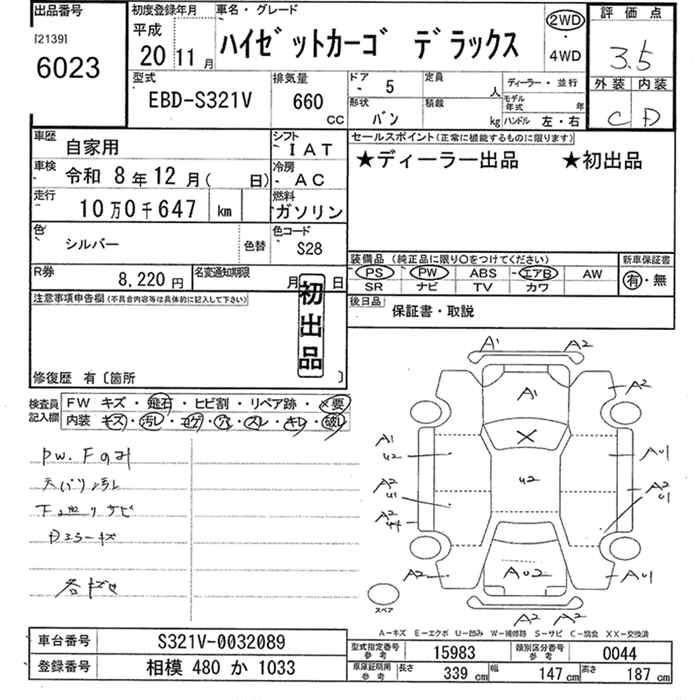 出品番号
[2139]
6023
初度登録年月
平成
20 11月
車名・グレード
ハイゼットカーゴ デラックス
2WD
・
4WD
評価点
3.5
外装 内装
C D
型式
EBD-S321V
排気量
660
CC
ドア
5
定員
人
形状
バン
積載
kg
ディーラー・並行
モデル年式
年
ハンドル 左・右
車歴
自家用
シフト
IAT
車検
令和 8年12月( 日)
冷房
AC
走行
10万0千647 km
燃料
ガソリン
色
シルバー
色替
色コード
S28
R券
8,220円
名変通知期限
月 日
セールスポイント(正常に機能するものに限ります)
★ディーラー出品 ★初出品
装備品(純正品に限り○をつけてください)
PS PW ABS エアB AW
SR ナビ TV カワ
新車保証書
有・無
後日品
保証書・取説
注意事項申告欄(不具合内容等は具体的に記入して下さい)
初出品
修復歴 有〔箇所 〕
検査員記入欄
FW キズ・飛石・ヒビ割・リペア跡・×要
内装 キズ・汚レ・コゲ・穴・スレ・キレ・破レ
PW. Fのみ
天バリ汚レ
下廻りサビ
Dミラーキズ
各キズ凹
A1 A2
A1 A2
A1
U2
A2
U1
A2
A2
U2
A U1
A2
U1
A U2
A U1
A2 A2
スペア
A-キズ E-エクボ U-凹み W-補修跡 S-サビ C-腐食 XX-交換済
車台番号 S321V-0032089
登録番号 相模 480 か 1033
型式指定番号
参考
15983
類別区分番号
参考
0044
車庫証明用
参考
長さ 339 cm 幅 147 cm 高さ 187 cm